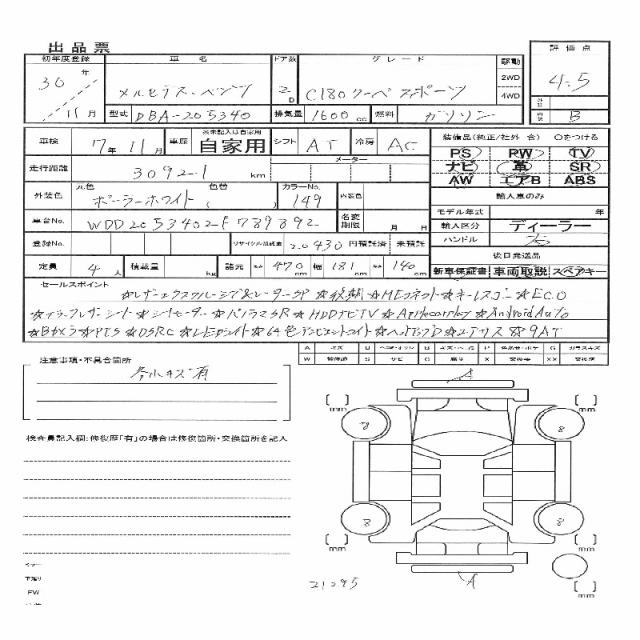 出品票
初年度登録 車名 ドア数 グレード 駆動 評価点
30年 11月 メルセデス・ベンツ 2D C180クーペスポーツ 2WD 4WD 4.5
型式 DBA-205340 排気量 1600cc 燃料 ガソリン B
車検 17年 11月 車歴 自家用 シフト AT 冷房 AC 装備品(純正/社外 含) Oをつける
走行距離 30921 km メーター PS PW TV
ナビ 革 SR
AW エアB ABS
外装色 元色 ポーラーホワイト ( 色替 ) カラーNo. 149 内装色 輸入車のみ
モデル年式 年
車台No. WDD2053402F789892 名変期限 月 日 輸入区分 ディーラー
登録No. リサイクル預託金 20430 円預託済 未預託 ハンドル 右
後日発送品
定員 4人 積載量 kg 諸元 長さ 470cm 幅 181cm 高さ 140cm 新車保証書 車両取説 スペアキー
セールスポイント
★レザーエクスクルーシブ&レーダーSP ★後期 ★MEコネクト ★キーレスゴー ★ECO
★ブラックレザーシート ★シートヒーター ★パノラマSR ★HDDナビTV ★Applecarplay ★AndroidAuto
★Bカメラ ★PTS ★DSRC ★LEDライト ★64色アンビエントライト ★ヘッドアップD ★ユーティリティP ★9AT
注意事項・不具合箇所
A キズ U W S C P X G XX
小キズ有
検査員記入欄:修復歴「有」の場合は修復箇所・交換箇所を記入
A
[ ]mm [ ]mm
8 8
8 8
[ ]mm [ ]mm
A
21295
[ ]mm